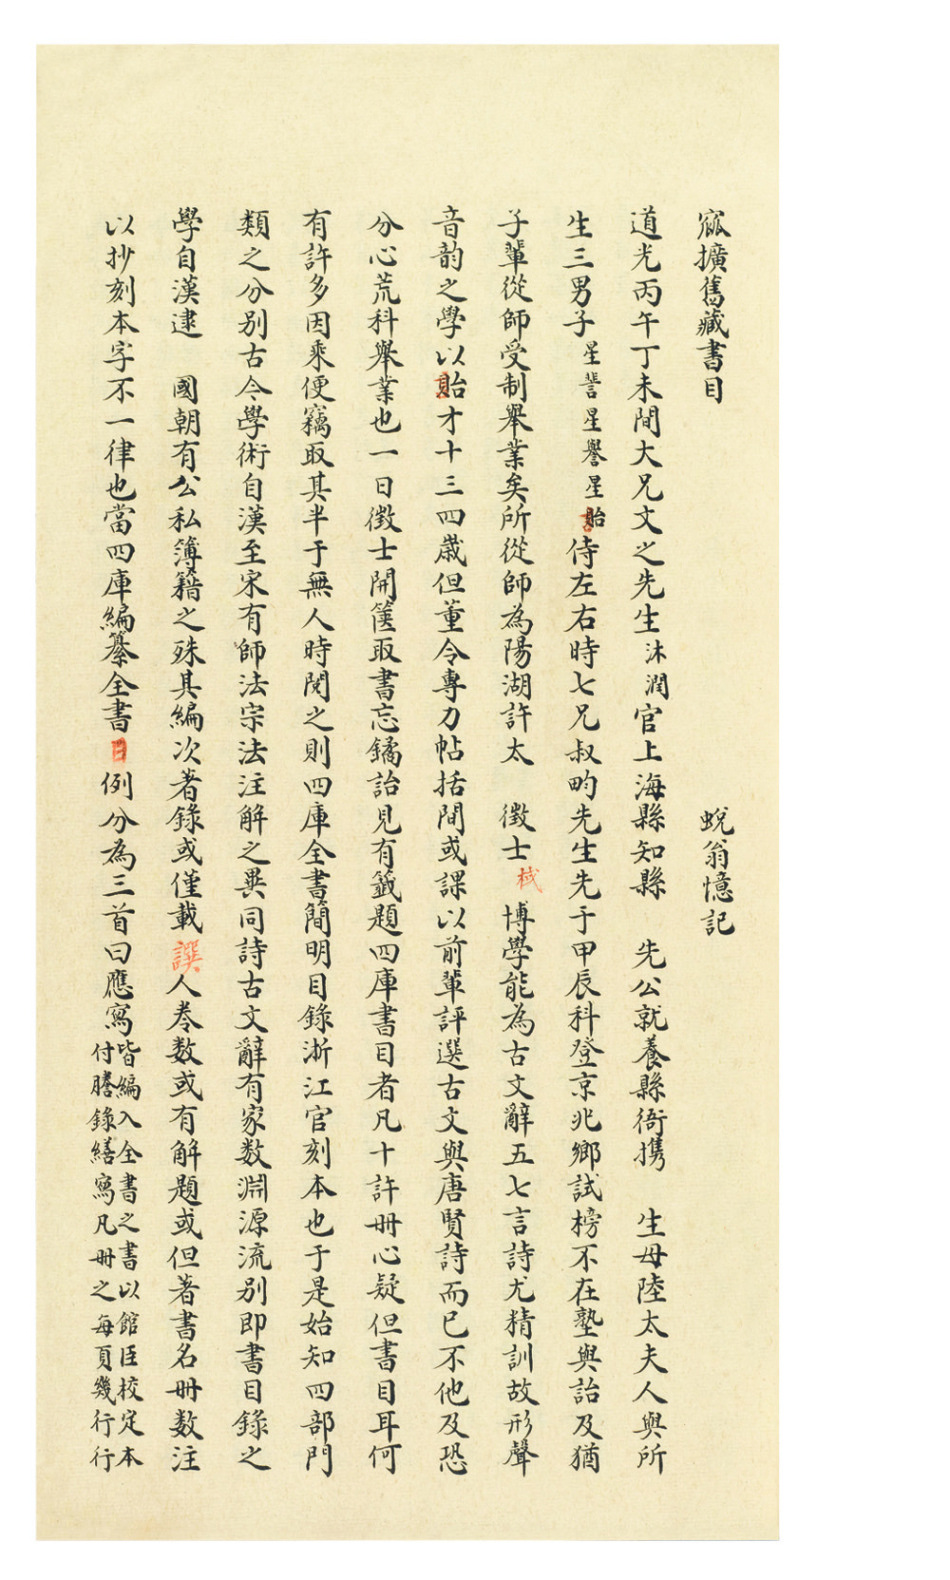 寙擴舊藏書目　蛻翁憶記
道光丙午丁未間大兄文之先生沐潤官上海縣知縣　先公就養縣衙攜　生母陸太夫人與所
生三男子星誉星譽星詒侍左右時七兄叔畇先生先于甲辰科登京兆鄉試榜不在塾與詒及猶
子輩從師受制舉業矣所從師為陽湖許太　徵士棫博學能為古文辭五七言詩尤精訓故形聲
音韵之學以詒才十三四歲但董令專力帖括間或課以前輩評選古文與唐賢詩而已不他及恐
分心荒科舉業也一日徵士開篋取書忘鐍詒見有籖題四庫書目者凡十許冊心疑但書目耳何
有許多因乘便竊取其半于無人時閱之則四庫全書簡明目錄浙江官刻本也于是始知四部門
類之分別古今學術自漢至宋有師法宗法注解之異同詩古文辭有家数淵源流別即書目錄之
學自漢逮　國朝有公私簿籍之殊其編次著錄或僅載譔人卷数或有解題或但著書名冊数注
以抄刻本字不一律也當四庫編纂全書日例分為三首曰應寫皆編入全書之書以館臣校定本付謄錄繕寫凡冊之每頁幾行行